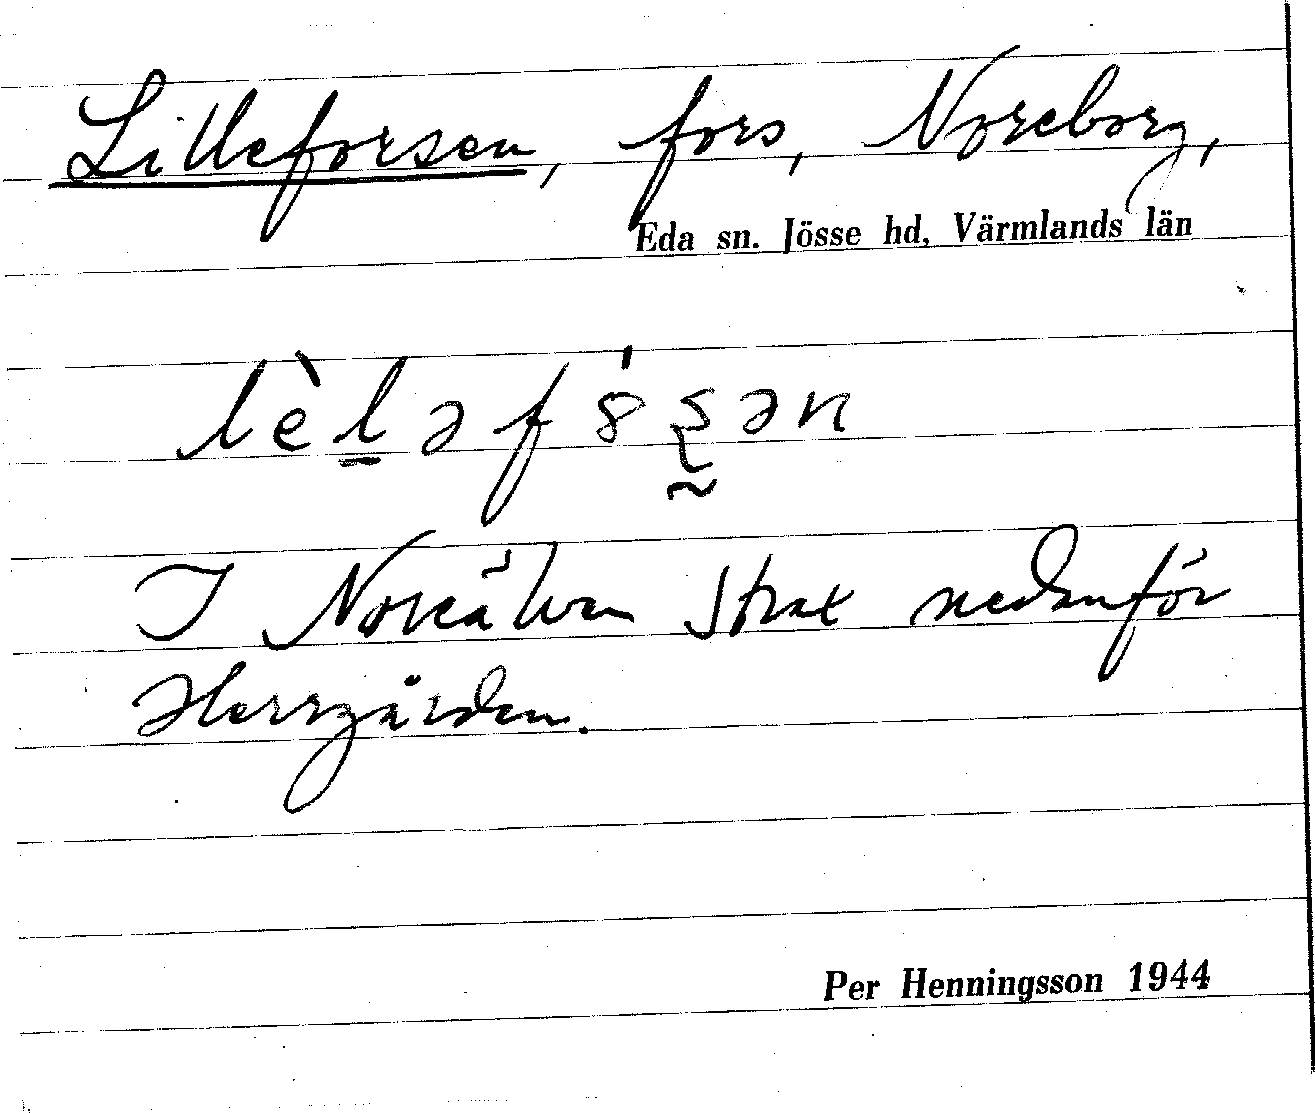 Lilleforsen, fors, Noreborg,
Eda sn. Jösse hd, Värmlands län
lèl̲əfȣ́ʂ̰ən
I Noreälven strax nedanför
Herrgården.
Per Henningsson 1944